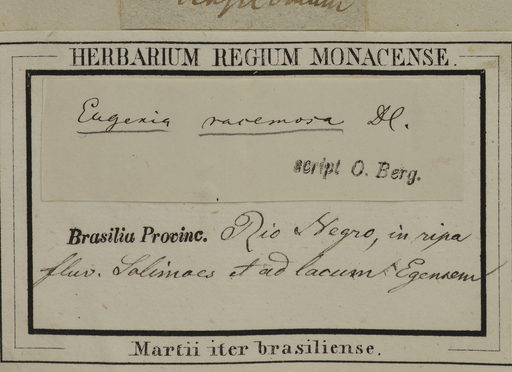 HERBARIUM REGIUM MONACENSE.
Eugenia racemosa DC.
script O. Berg.
Brasilia Provinc. Rio Negro, in ripa
fluv. Solimoes et ad lacum Egensem
Martii iter brasiliense.